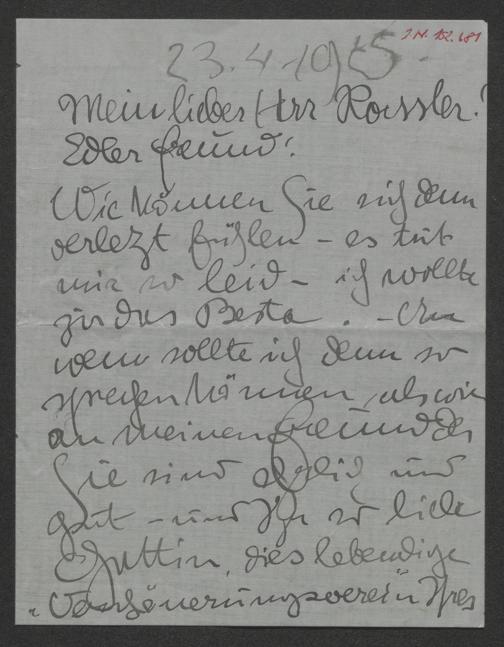 J.N. 152.681
23.4.1915.
Mein lieber Herr Roessler!
Edler Freund!
Wie können Sie sich denn
verlezt fühlen – es tut
mir so leid – ich wollte
ja das Beste. –
wem sollte ich denn so
sprechen können, als wie
an meinen Freund der
Sie sind edel und
gut – und Ihre so liebe
Gattin, dies lebendige
„Verschönerungsverein" Ihres